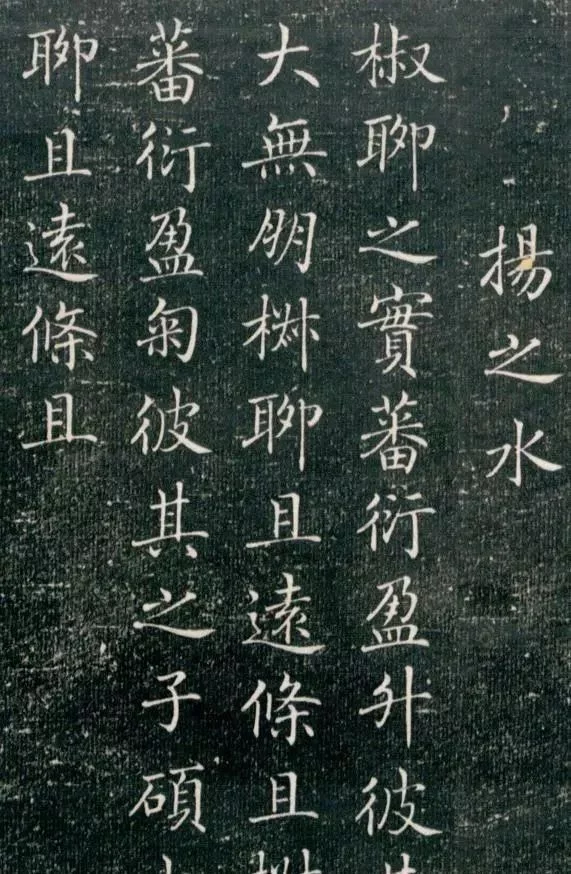 揚之水
椒聊之實蕃衍盈升彼
大無朋椒聊且遠條且
蕃衍盈匊彼其之子碩
聊且遠條且